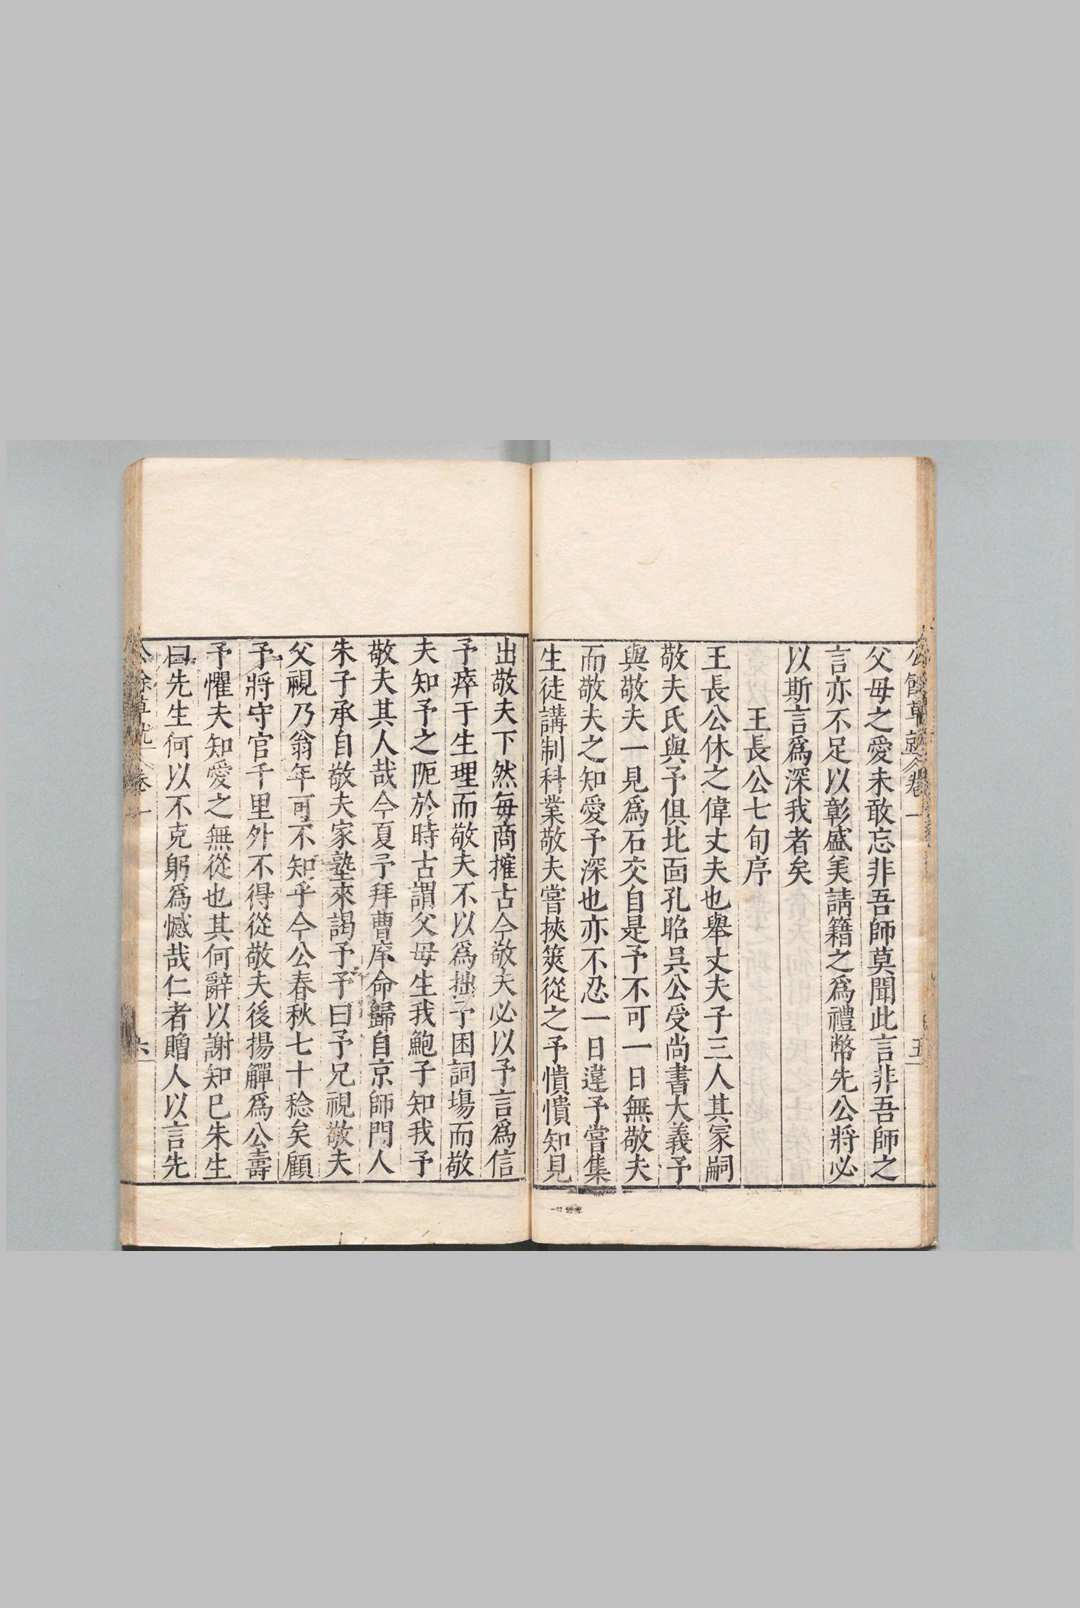 父母之愛未敢忘非吾師莫聞此言非吾師之
言亦不足以彰盛美請籍之爲禮幣先公將必
以斯言爲深我者矣
王長公七旬序
王長公休之偉丈夫也舉丈夫子三人其冡嗣
敬夫氏與予俱北面孔昭吳公受尚書大義予
與敬夫一見爲石交自是予不可一日無敬夫
而敬夫之知愛予深也亦不忍一日違予嘗集
生徒講制科業敬夫嘗挾筴從之予憒憒知見
出敬夫下然每商搉古今敬夫必以予言爲信
予瘁于生理而敬夫不以爲拙予困詞塲而敬
夫知予之阨於時古謂父母生我鮑子知我予
敬夫其人哉今夏予拜曹庠命歸自京師門人
朱子承自敬夫家塾來謁予予曰予兄視敬夫
父視乃翁年可不知乎今公春秋七十稔矣顧
予將守官千里外不得從敬夫後揚觶爲公壽
予懼夫知愛之無從也其何辭以謝知已朱生
曰先生何以不克躬爲憾哉仁者贈人以言先